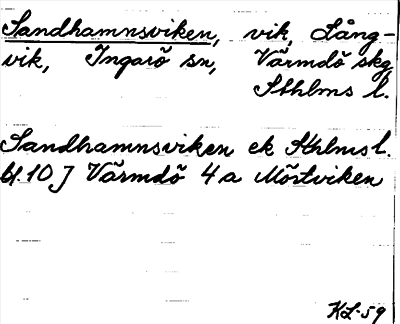 Sandhamnsviken, vik, Lång-
vik, Ingarö sn, Värmdö skg
Sthlms l.
Sandhamnsviken ek Sthlms l.
bl. 10 J Värmdö 4a Mörtviken
KL-59